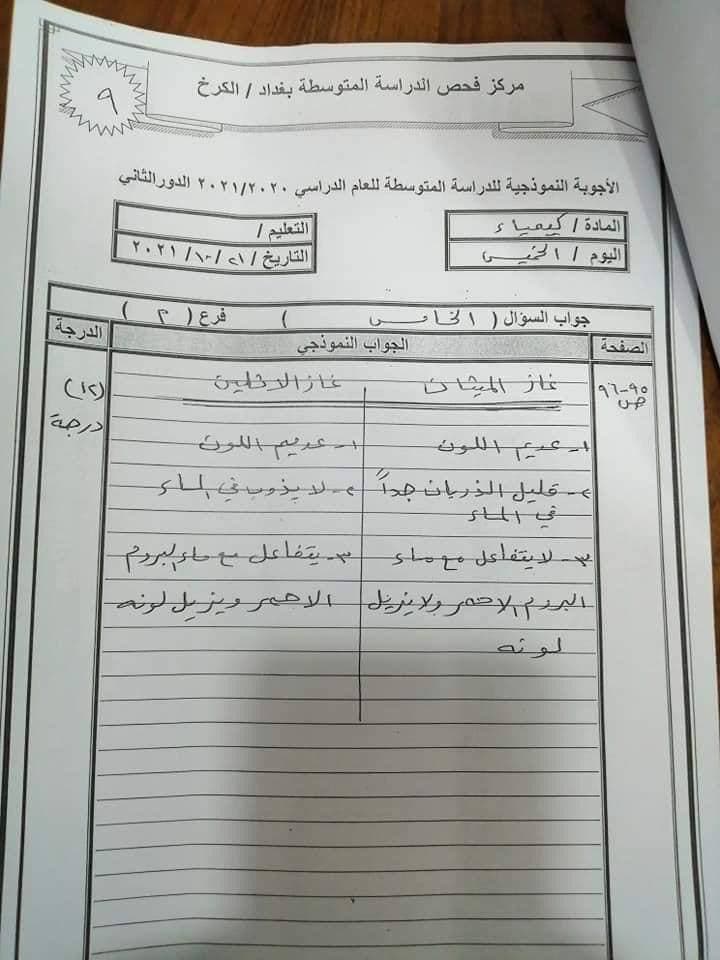 مركز فحص الدراسة المتوسطة بغداد / الكرخ
٩
الأجوبة النموذجية للدراسة المتوسطة للعام الدراسي ٢٠٢١/٢٠٢٠ الدور الثاني
المادة / كيمياء
التعليم /
اليوم / الخميس
التاريخ / ٢١ / ١٠ / ٢٠٢١
جواب السؤال ( الخامس ) فرع ( ٢ )
الصفحة الجواب النموذجي الدرجة
ص ٩٥-٩٦
(١٢) درجة
غاز الميثان غاز الاثلين
١- عديم اللون ١- عديم اللون
٢- قليل الذوبان جداً ٢- لا يذوب في الماء
في الماء
٣- لا يتفاعل مع ماء ٣- يتفاعل مع ماء البروم
البروم الاحمر ولا يزيل الاحمر ويزيل لونه
لونه